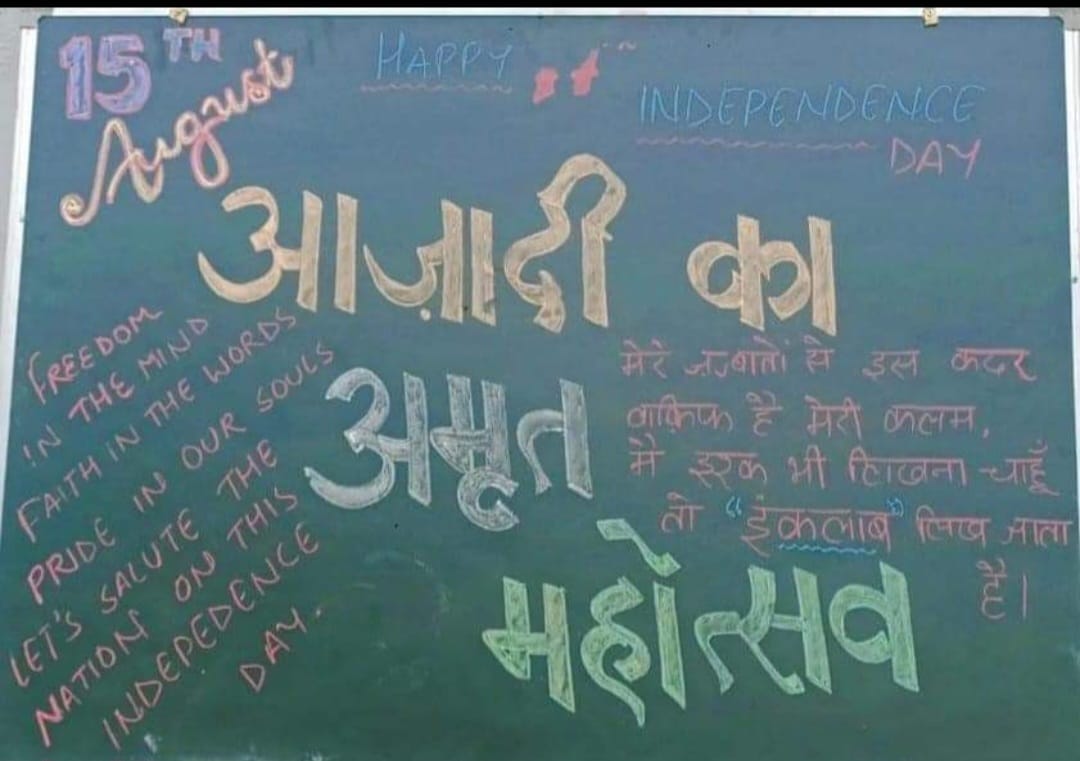 15TH
August
HAPPY
INDEPENDENCE
DAY
आज़ादी का
अमृत
महोत्सव
FREEDOM
IN THE MIND
FAITH IN THE WORDS
PRIDE IN OUR SOULS
LET'S SALUTE THE
NATION ON THIS
INDEPEDENCE
DAY.
मेरे जज्बातों से इस कदर
वाक़िफ है मेरी कलम,
मै इश्क भी लिखना चाहूँ
तो "इंकलाब" लिख जाता
है।